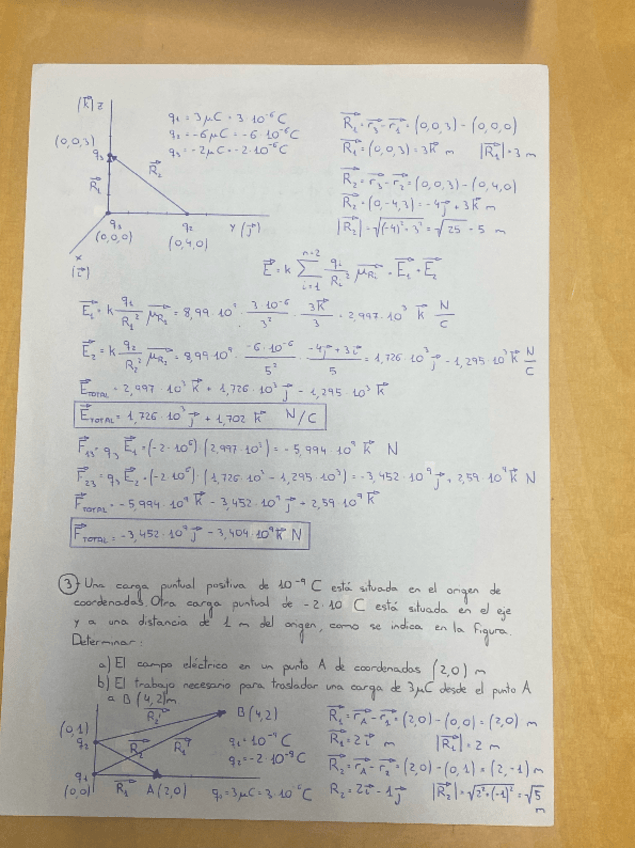 |k⃗| z
(0,0,3)
q₃
R₁⃗
R₂⃗
q₃
(0,0,0)
q₂
(0,4,0)
y (j⃗)
x
(i⃗)
q₁ = 3μC = 3·10⁻⁶ C
q₂ = -6μC = -6·10⁻⁶ C
q₃ = -2μC = -2·10⁻⁶ C
R₁⃗ = r₃⃗ - r₁⃗ = (0,0,3) - (0,0,0)
R₁⃗ = (0,0,3) = 3k⃗ m |R₁⃗| = 3 m
R₂⃗ = r₃⃗ - r₂⃗ = (0,0,3) - (0,4,0)
R₂⃗ = (0,-4,3) = -4j⃗ + 3k⃗ m
|R₂⃗| = √(-4)² + 3² = √25 = 5 m
E⃗ = k Σ (n=2, i=1) qᵢ/Rᵢ² μ_Rᵢ⃗ = E₁⃗ + E₂⃗
E₁⃗ = k q₁/R₁² μ_R₁⃗ = 8,99·10⁹ · 3·10⁻⁶/3² · 3k⃗/3 = 2,997·10³ k⃗ N/C
E₂⃗ = k q₂/R₂² μ_R₂⃗ = 8,99·10⁹ · -6·10⁻⁶/5² · -4j⃗+3i⃗/5 = 1,726·10³ j⃗ - 1,295·10³ k⃗ N/C
E⃗TOTAL = 2,997·10³ k⃗ + 1,726·10³ j⃗ - 1,295·10³ k⃗
E⃗TOTAL = 1,726·10³ j⃗ + 1,702 k⃗ N/C
F₁₃⃗ = q₃ E₁⃗ = (-2·10⁶)·(2,997·10³) = -5,994·10⁹ k⃗ N
F₂₃⃗ = q₃ E₂⃗ = (-2·10⁶)·(1,726·10³ - 1,295·10³) = -3,452·10⁹ j⃗ + 2,59·10⁹ k⃗ N
F⃗TOTAL = -5,994·10⁹ k⃗ - 3,452·10⁹ j⃗ + 2,59·10⁹ k⃗
F⃗TOTAL = -3,452·10⁹ j⃗ - 3,404·10⁹ k⃗ N
③ Una carga puntual positiva de 10⁻⁹ C está situada en el origen de
coordenadas. Otra carga puntual de -2·10 C está situada en el eje
y a una distancia de 1 m del origen, como se indica en la figura.
Determinar:
a) El campo eléctrico en un punto A de coordenadas (2,0) m
b) El trabajo necesario para trasladar una carga de 3μC desde el punto A
a B (4,2)m
(0,1)
q₂
R₂'⃗
B (4,2)
R₂⃗
R₁'⃗
q₁
(0,0)
R₁⃗
A (2,0)
q₁ = 10⁻⁹ C
q₂ = -2·10⁻⁹ C
q₃ = 3μC = 3·10⁻⁶ C
R₁⃗ = r_A⃗ - r₁⃗ = (2,0) - (0,0) = (2,0) m
R₁⃗ = 2i⃗ m |R₁⃗| = 2 m
R₂⃗ = r_A⃗ - r₂⃗ = (2,0) - (0,1) = (2,-1) m
R₂ = 2i⃗ - 1j⃗ |R₂⃗| = √2² + (-1)² = √5 m